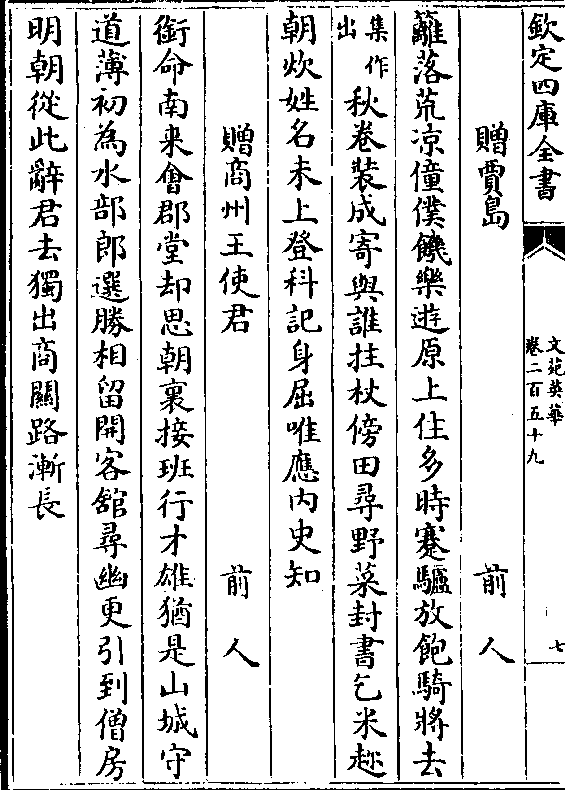 欽定四庫全書
文苑英華
卷二百五十九
七
贈賈島
前人
籬落荒凉僮僕饑樂遊原上住多時蹇驢放飽騎將去
集作
出
秋卷裝成寄與誰拄杖傍田尋野菜封書乞米趂
朝炊姓名未上登科記身屈唯應内史知
贈商州王使君
前人
銜命南来㑹郡堂却思朝裏接班行才雄猶是山城守
道薄初為水部郎選勝相留開客舘尋幽更引到僧房
明朝從此辭君去獨出商關路漸長